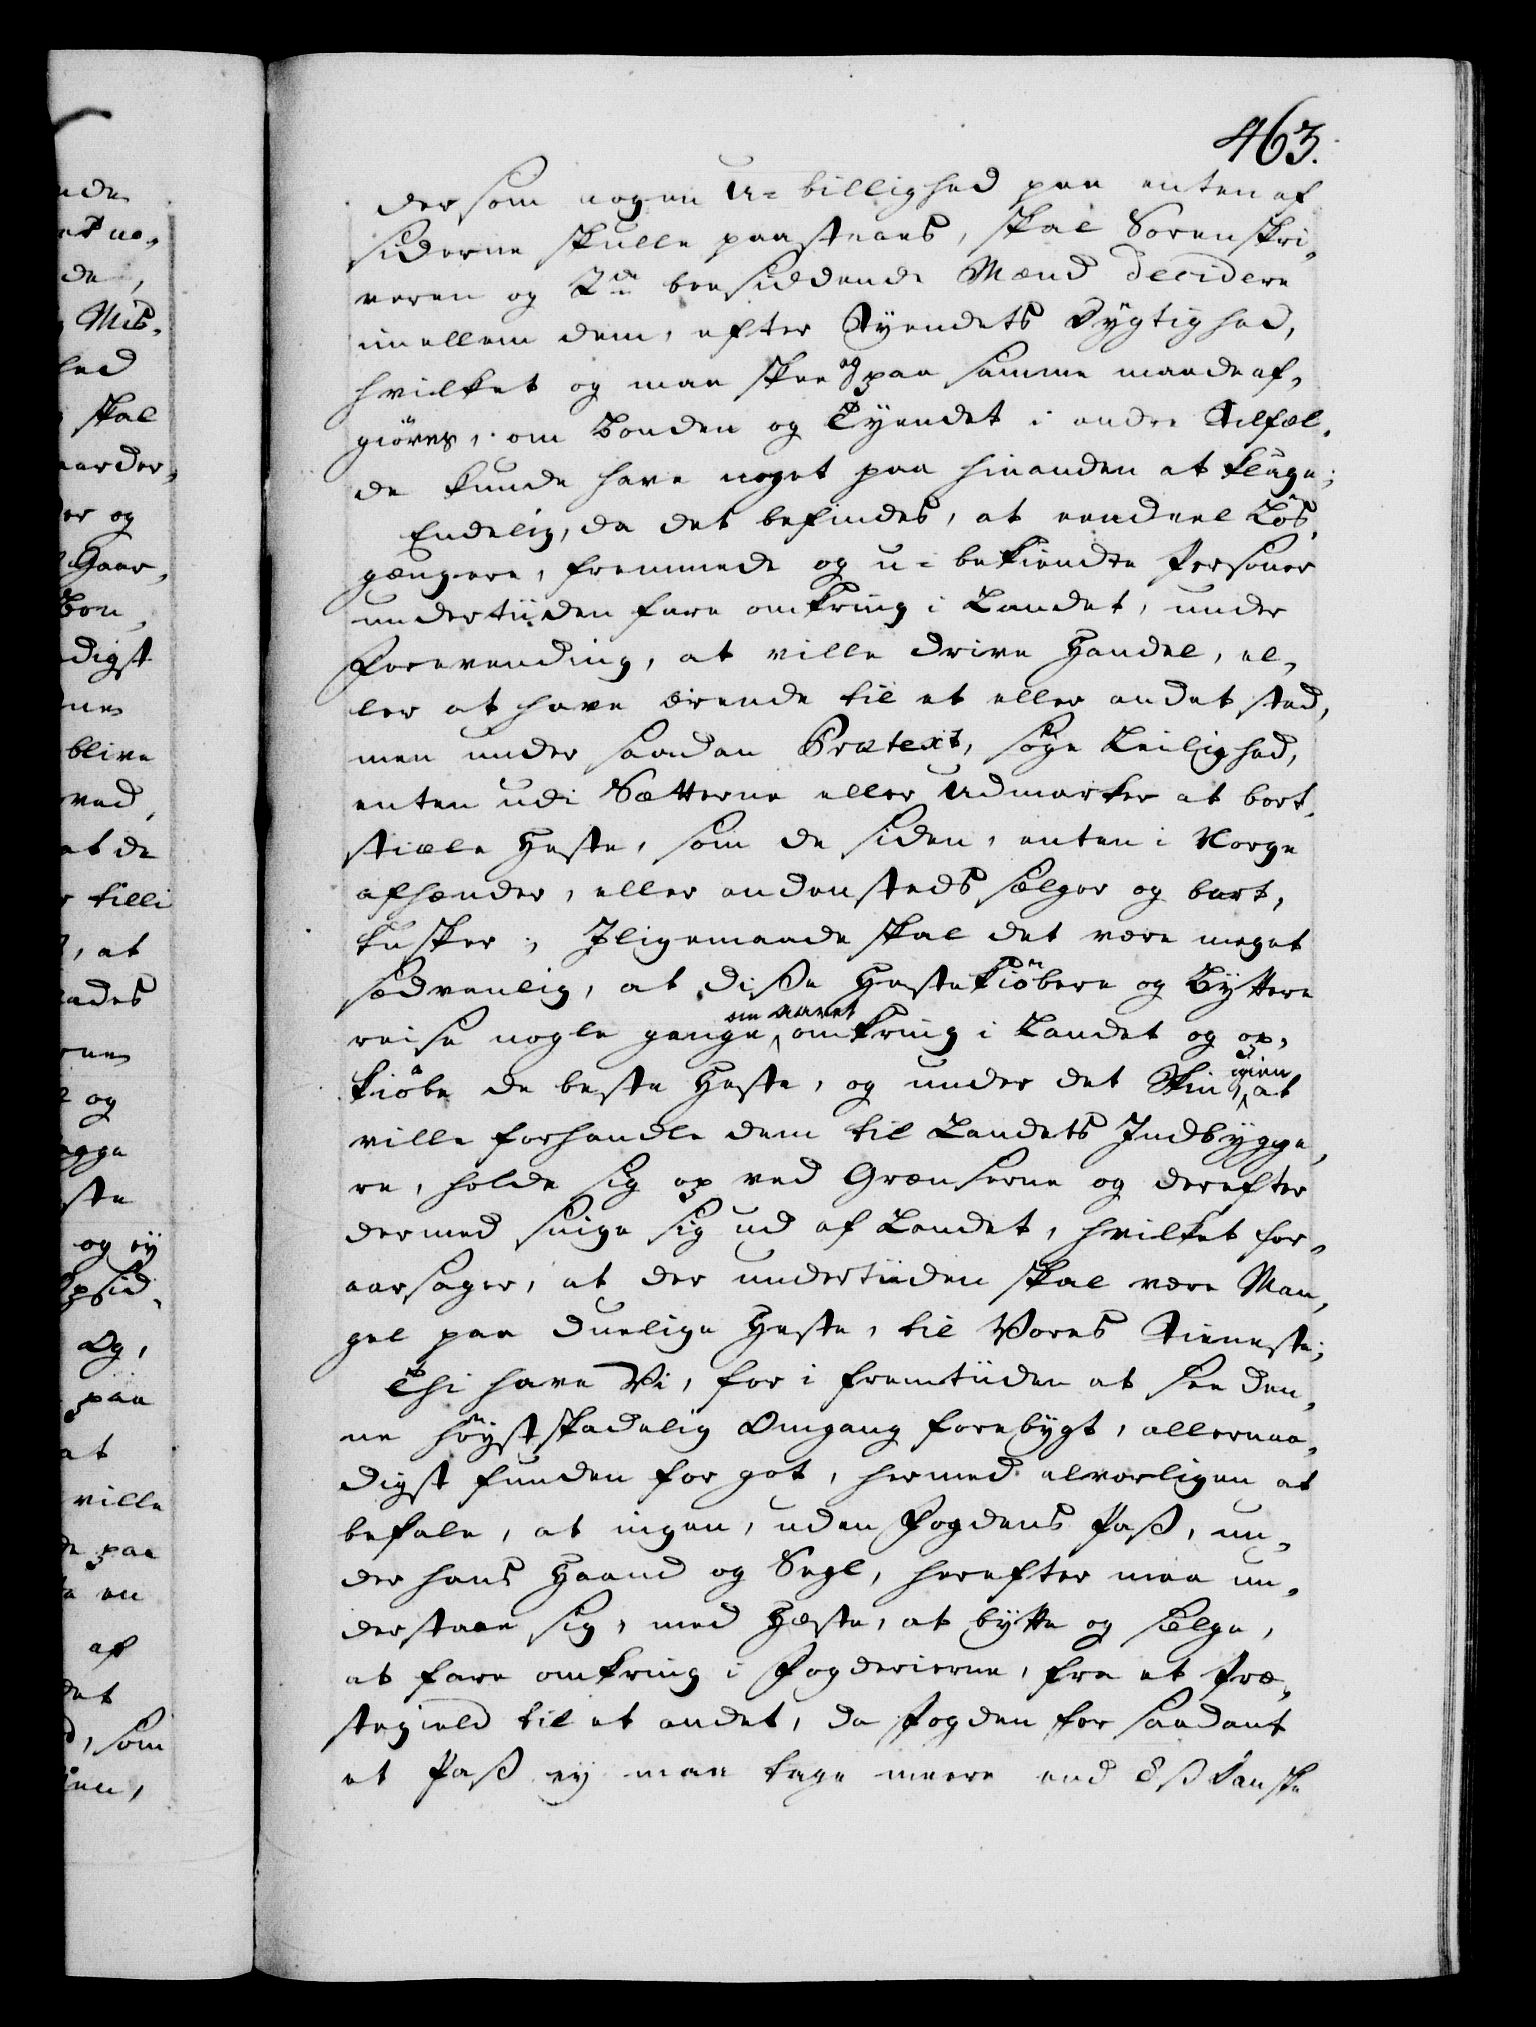 463.
dersom nogen U=billighed paa enten af
siderne skulle paastaaes, skal Sorenskri,
veren og 2de boesiddende Mænd decidere
imellem dem, efter Tyendets Dygtighed,
hvilket og maa skee og paa samme maade af,
giöres, om Bonden og Tyendet i andre Tilfæl,
de kunde have noget paa hinanden at klage;
Endelig, da det befindes, at eendeel Lös,
gængere, fremmede og u=bekiendte Personer
undertiiden fare omkring i Landet, under
Forevending, at ville drive Handel, el,
ler at have ærende til et eller andet sted,
men under saadan Prætext, söge Leilighed,
enten udi Sætterne eller Udmarker at bort,
stiæle Heste, som de siden, enten i Norge
afhænder, eller andensteds sælger og bort,
tusker; Iligemaade skal det være meget
sædvanlig, at diße Hestekiöbere og Byttere
reise nogle gange om aaret omkring i Landet og op,
kiöbe de beste Heste, og under det Skin, igien at
ville forhandle dem til Landets Indbygge,
re, holde sig op ved Grænserne og derefter
dermed snige sig ud af Landet, hvilket for,
aarsager, at der undertiiden skal være Man,
gel paa duelige Heste, til Vores Tieneste;
Thi have Vi, for i fremtiiden at see den,
ne höystskadelig Omgang forebygt, allernaa,
digst funden for got, hermed alvorligen at
befale, at ingen, uden Fogdens Paß, un,
der hans Haand og Segl, herefter maa un,
derstaae sig, med Heste, at bytte og sælge,
at fare omkring i Fogderierne, fra et Præ,
stegield til et andet, da Fogden for saadant
et Paß ey maa tage meere end 8 ß danske